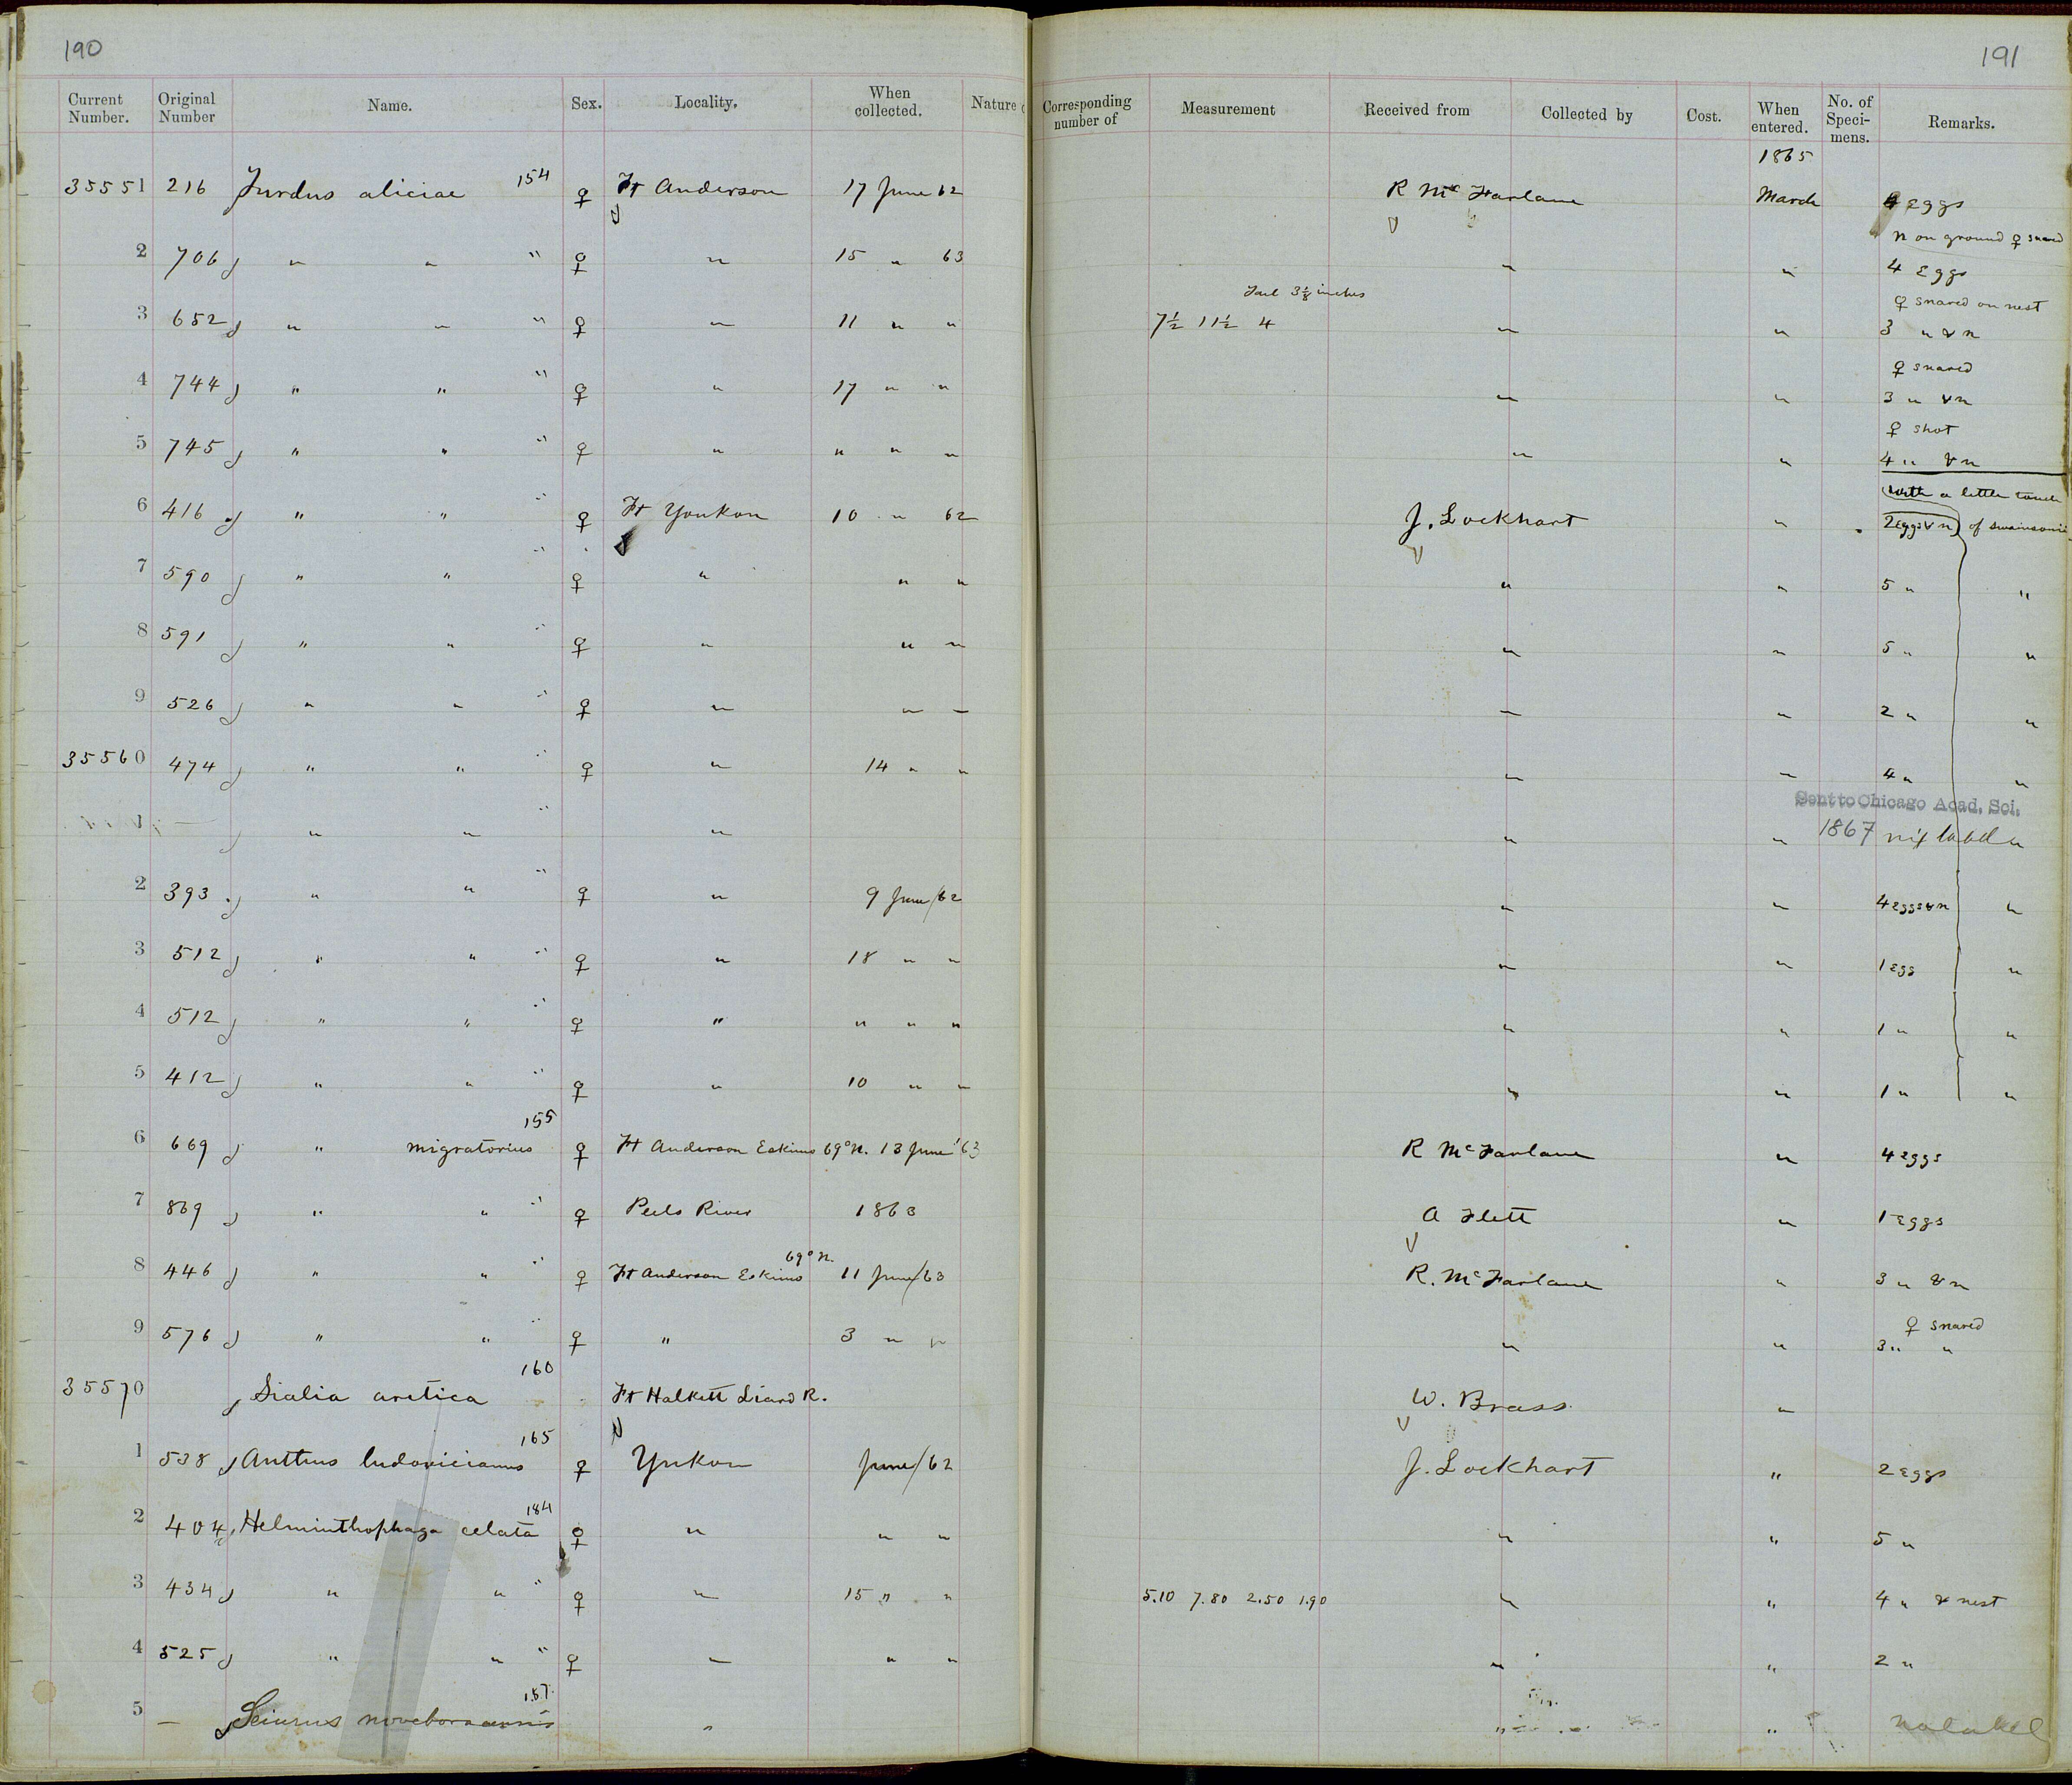 190
191
Current Number. Original Number Name. Sex. Locality. When collected. Nature Corresponding number of Measurement Received from Collected by Cost. When entered. No. of Speci- mens. Remarks.
1865
35551 216 Turdus aliciae 154 ♀ Ft Anderson 17 June 62 R McFarlane March 4 Eggs
n on ground ♀ snared
2 706 " " " ♀ " 15 " 63 " " 4 Eggs
Tail 3⅛ inches ♀ snared on nest
3 652 " " " ♀ " 11 " " 7½ 11½ 4 " " 3 " & n
♀ snared
4 744 " " " ♀ " 17 " " " " 3 " & n
♀ shot
5 745 " " " ♀ " " " " " " 4 " & n
with a little
6 416 " " " ♀ Ft Youkon 10 " 62 J. Lockhart " 2 Eggs & n of swainsonii
7 590 " " " ♀ " " " " " 5 " "
8 591 " " " ♀ " " " " " 5 " "
9 526 " " " ♀ " " " " " 2 " "
35560 474 " " " ♀ " 14 " " " " 4 " "
Sent to Chicago Acad. Sci.
1 — " " " " " " 1867 label "
2 393 " " " ♀ " 9 June/62 " " 4 eggs & n "
3 512 " " " ♀ " 18 " " " " 1 egg "
4 512 " " " ♀ " " " " " " 1 " "
5 412 " " " ♀ " 10 " " " " 1 " "
6 669 " migratorius 155 ♀ Ft Anderson Eskimo 69° N. 13 June '63 R McFarlane " 4 eggs
7 869 " " " ♀ Peels River 1863 A Flett " 1 eggs
8 446 " " " ♀ Ft Anderson Eskimo 69° N. 11 June/63 R. McFarlane " 3 " & n
♀ snared
9 576 " " " ♀ " 3 " " " " 3 " "
35570 Sialia arctica 160 Ft Halkett Liard R. W. Brass "
1 538 Anthus ludovicianus 165 ♀ Yukon June/62 J. Lockhart " 2 Eggs
2 404 Helminthophaga celata 184 ♀ " " " " " 5 "
3 434 " " " ♀ " 15 " " 5.10 7.80 2.50 1.90 " " 4 " & nest
4 525 " " " ♀ " " " " " 2 "
5 — Seiurus noveboracensis 187 " " " no label